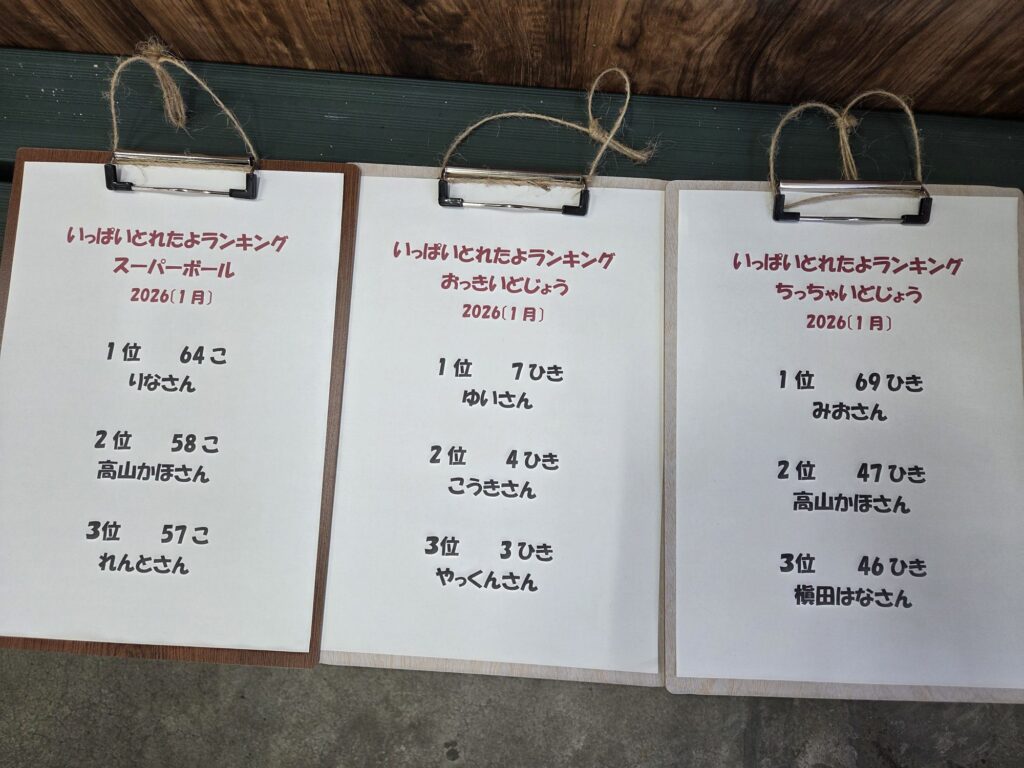 いっぱいとれたよランキング
スーパーボール
2026〔1月〕
1位 64こ
りなさん
2位 58こ
高山かほさん
3位 57こ
れんとさん
いっぱいとれたよランキング
おっきいどじょう
2026〔1月〕
1位 7ひき
ゆいさん
2位 4ひき
こうきさん
3位 3ひき
やっくんさん
いっぱいとれたよランキング
ちっちゃいどじょう
2026〔1月〕
1位 69ひき
みおさん
2位 47ひき
高山かほさん
3位 46ひき
槇田はなさん